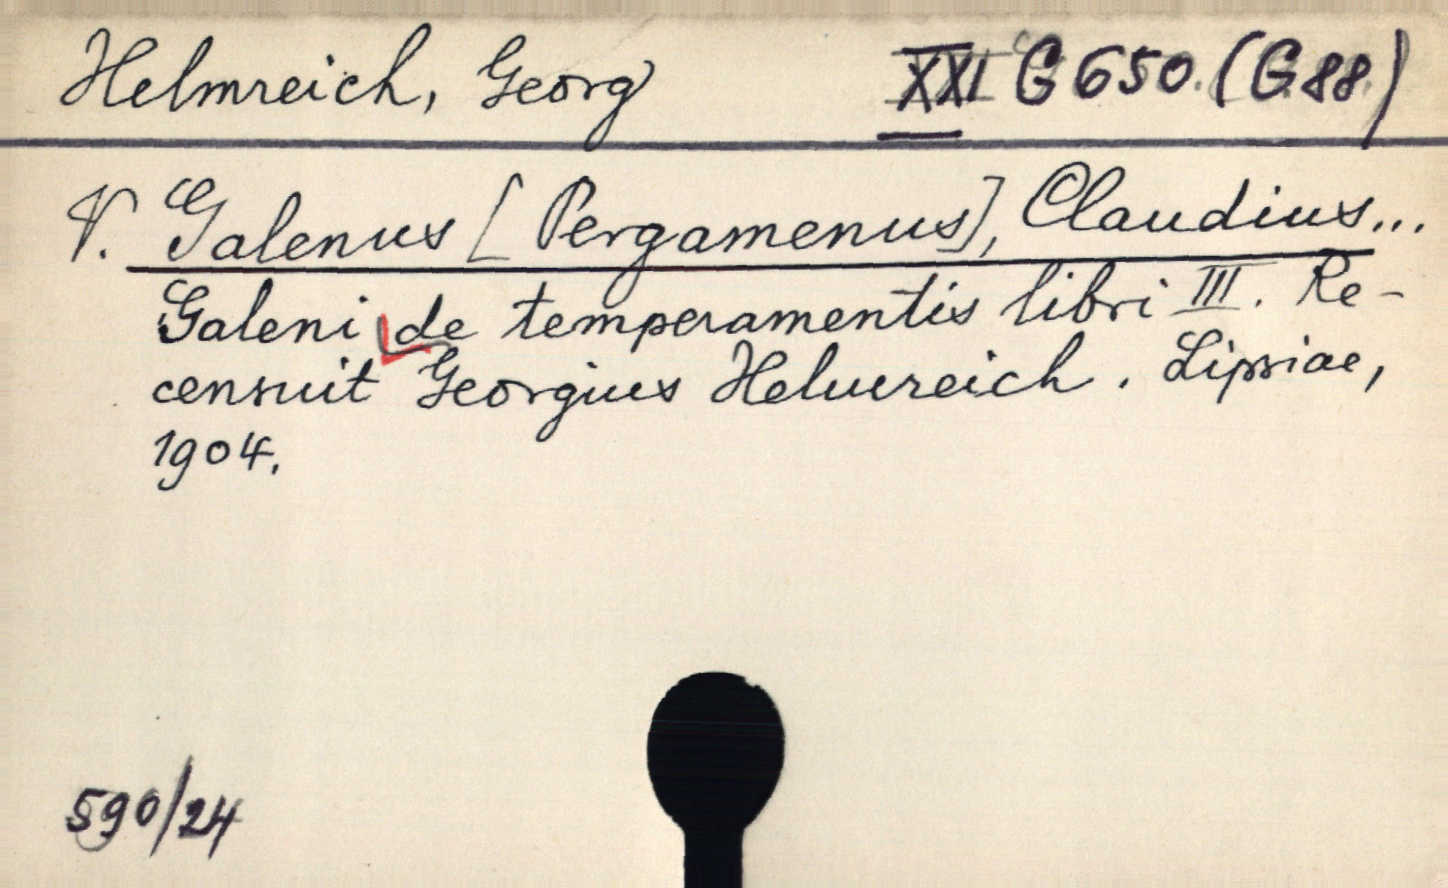 Helmreich, Georg XXI G 650. (G.88.)
V. Galenus [Pergamenus], Claudius...
Galeni de temperamentis libri III. Re-
censuit Georgius Helmreich. Lipsiae,
1904.
590/24